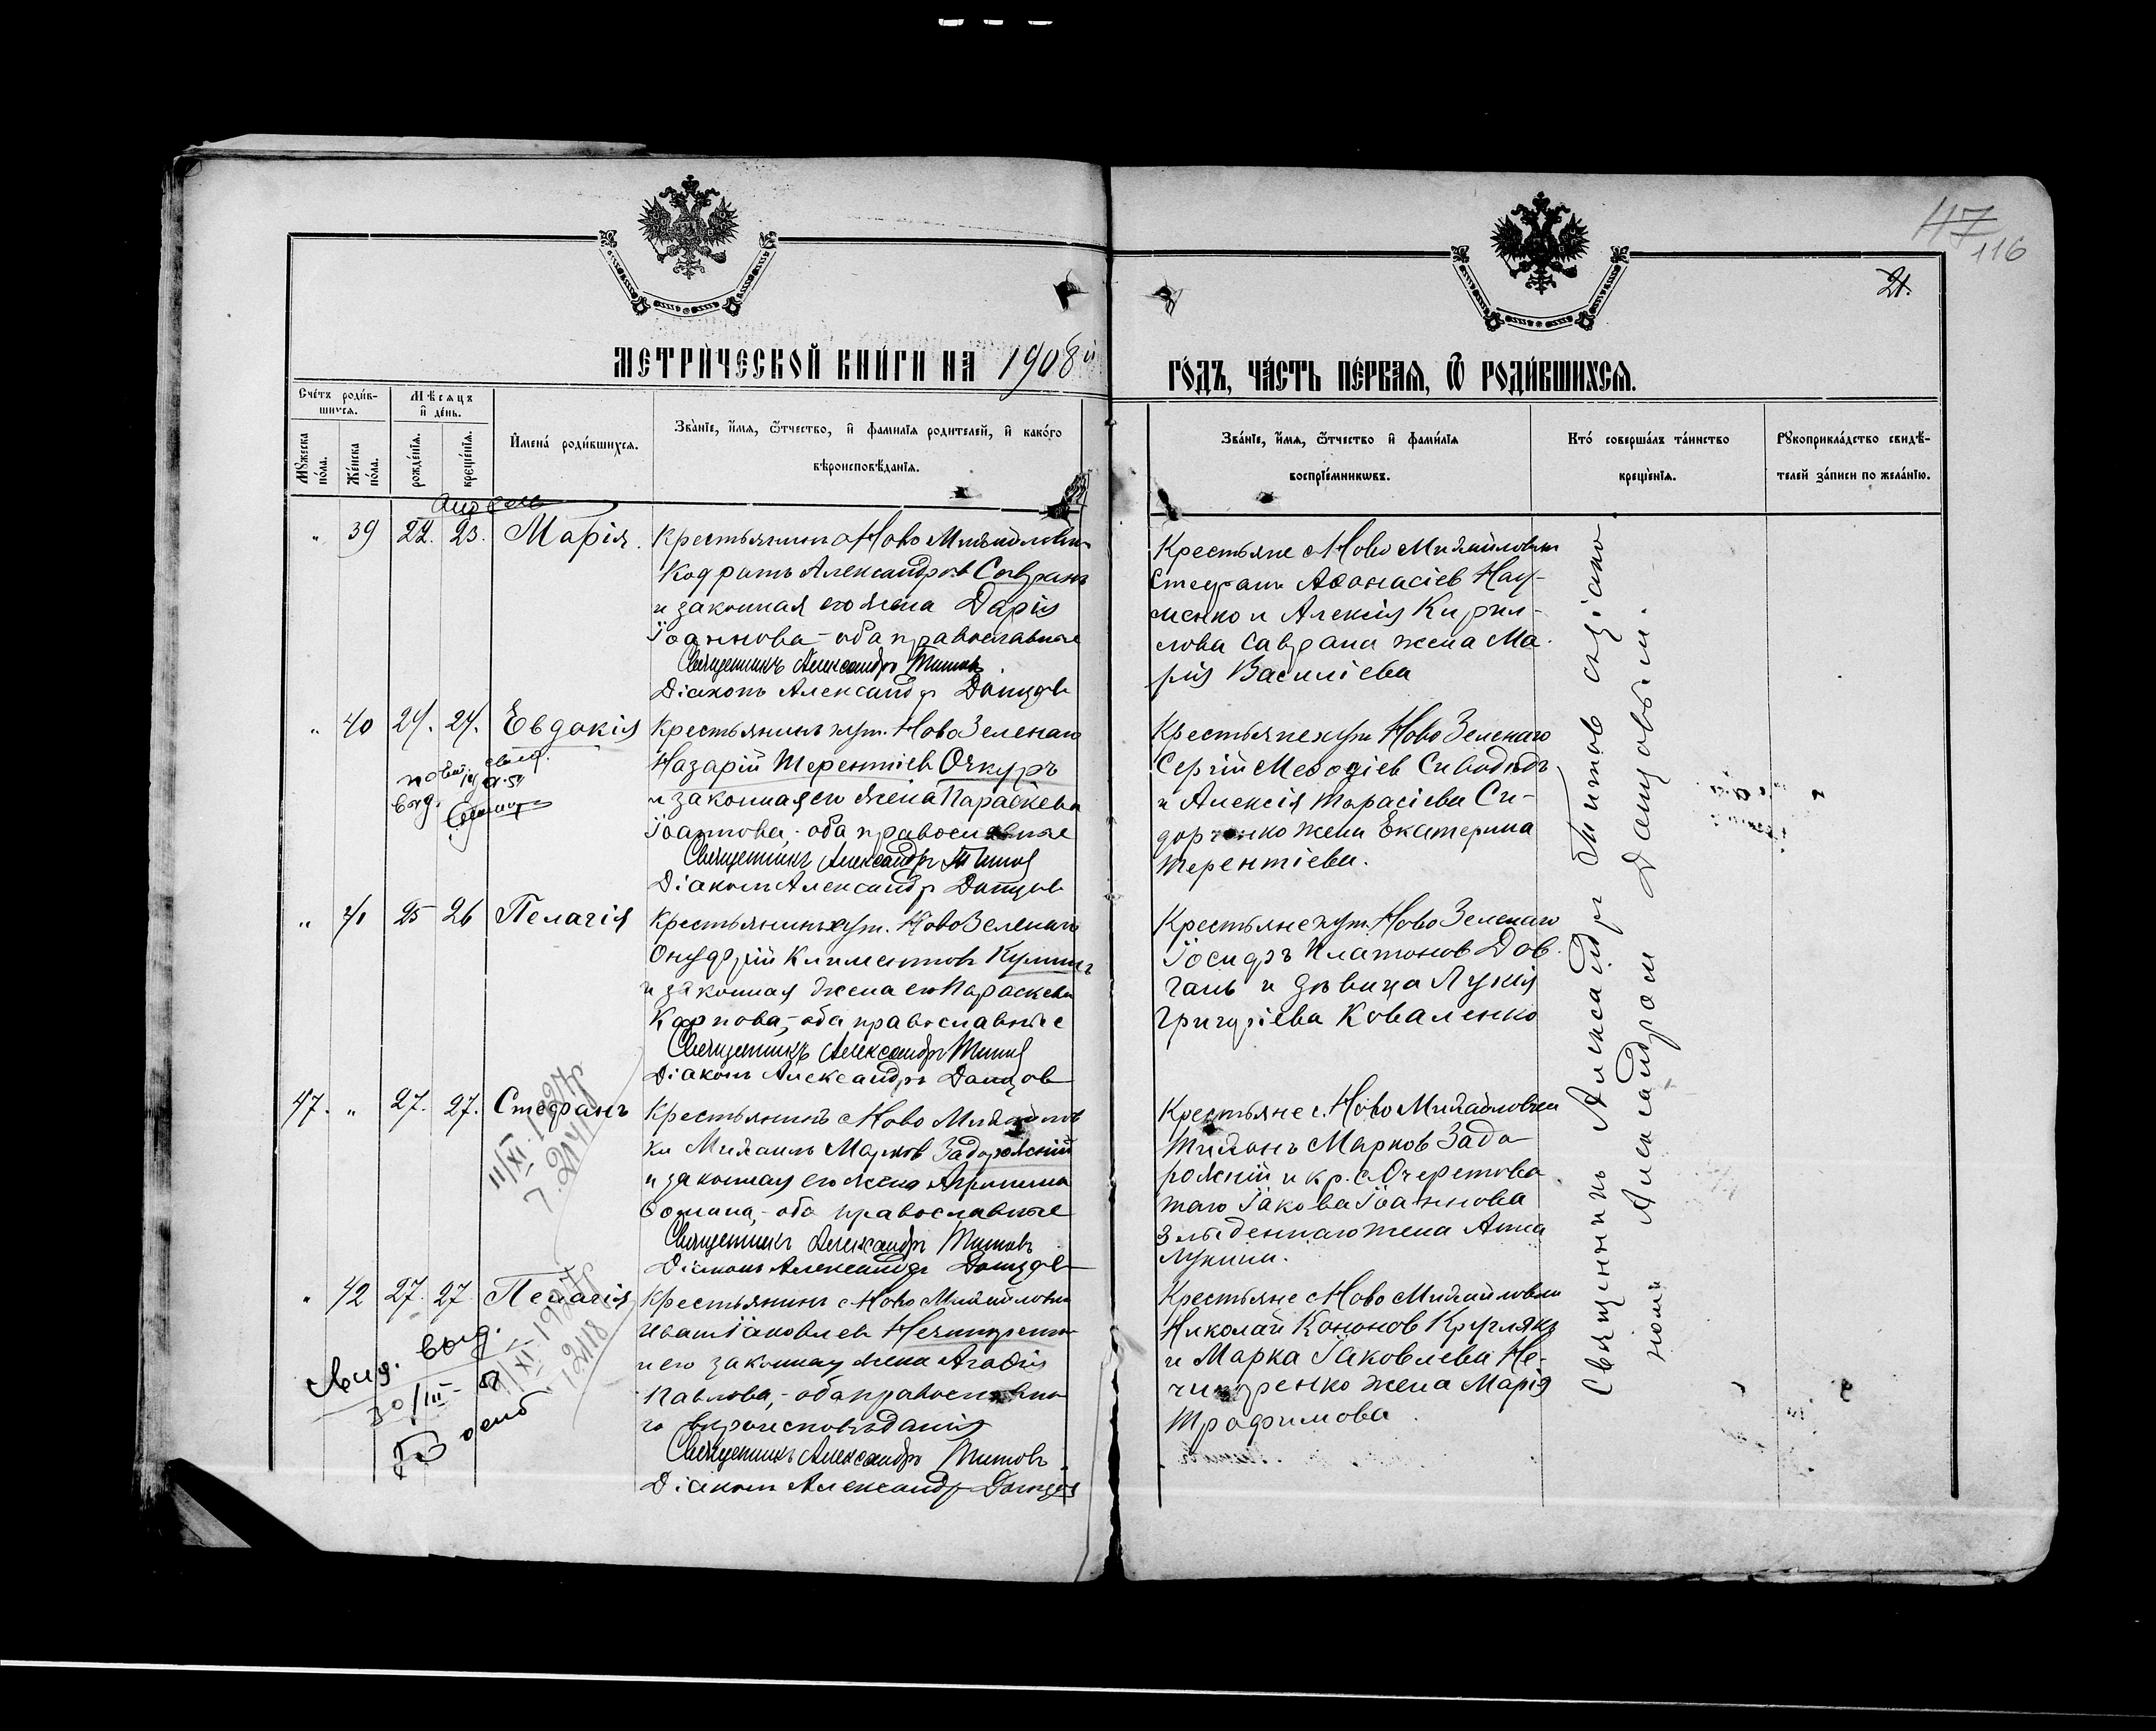 47
116
21.
МЕТРИ́ЧЕСКОЙ КНИ́ГИ НА 1908 й
ГО́ДЪ, ЧА́СТЬ ПЕ́РВАЯ, Ѿ РОДИ́ВШИХСЯ.
Сче́тъ роди́в-
шихся.
Мꙋ́жеска по́ла.
Же́нска по́ла.
Мѣ́сяцъ
и҆ де́нь.
рожде́нїя.
креще́нїя.
И҆мена̀ роди́вшихся.
Зва́нїе, и҆́мя, ѻ҆́тчество, и҆ фами́лїя роди́телей, и҆ како́гѡ
вѣроисповѣ́данїя.
Зва́нїе, и҆́мя, ѻ҆́тчество и҆ фами́лїя
воспрїе́мникѡвъ.
Кто́ соверша́лъ та́инство
креще́нїя.
Рꙋкоприкла́дство свидѣ́-
телей за́писи по жела́нїю.
Апрель
" 39 22. 23. Марія.
Крестьянинъ с Ново Михайловки
Кодратъ Александровъ Савранъ
и законная его жена Дарія
Іоаннова - оба православные
Священникъ Александръ Титовъ
Діаконъ Александръ Данцовъ
Крестьяне с Ново Михайловки
Стефанъ Аѳонасіев Нау-
менко и Алексія Кирил-
лова Саврана жена Ма-
рія Василіева
" 40 24. 24. Евдокія
Крестьянинъ хут. Ново Зеленаго
Назарій Терентіев Очкуръ
и законная его жена Параскева
Іоаннова, - оба православные
Священникъ Александръ Титов
Діаконъ Александръ Данцов
Крестьяне хут. Ново Зеленаго
Сергій Меѳодіев
и Алексія Тарасіева Си-
дорченко жена Екатерина
Терентіева.
" 41 25 26 Пелагія
Крестьянинъ хут. Ново Зеленаго
Онуфрій Климентовъ
и законная жена его Параскева
Карпова, - оба православные
Священникъ Александръ Титов
Діаконъ Александръ Данцов
Крестьяне хут. Ново Зеленаго
Іосифъ Платонов Дов-
гань и дѣвица Лукія
Григоріева Коваленко
47. " 27. 27. Стефанъ
11/XI. 1927
Крестьянинъ с Ново Михайлов
ки Михаилъ Марков Задорожній
и законная его жена Агрипина
Ѳомина, - оба православные
Священникъ Александръ Титовъ
Діаконъ Александръ Данцов
Крестьяне с. Ново Михайловки
Тихонъ Марков Задо-
рожній и кр. с. Очеретова-
таго Іакова Іоаннова
жена Анна
Лукина.
" 42 27. 27. Пелагія
Крестьянинъ с Ново Михайловки
Иванъ Іаковлев Нечипоренко
и его законная жена Агаѳія
Павлова, - оба православна-
го вѣроисповѣданія
Священникъ Александръ Титовъ
Діаконъ Александръ Данцов
Крестьяне с Ново Михайловки
Николай Кононов Круглякъ
и Марка Іаковлева Не-
чипоренко жена Марія
Трофимова.
30/III
Священникъ Александръ Титов с діако-
номъ Александром Данцовым.